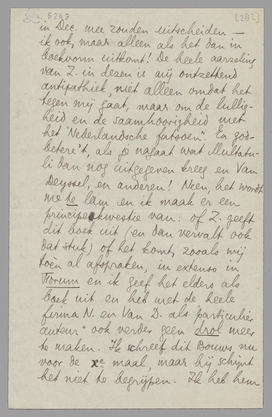 5285 [282]
in Dec. mee zouden uitscheiden —
ik ook, maar alleen als het dan in
boekvorm uitkomt! De heele aarzeling
van Z. in dezen is mij ontzettend
antipathiek, niet alleen omdat het
tegen mij gaat, maar om de lullig-
heid en de saamhoorigheid met
het "Nederlandsche fatsoen". En god-
betere't, als je nagaat wat Multatu-
li dan nog uitgegeven kreeg en Van
Deyssel, en anderen! Neen, het wordt
me te lam en ik maak er een
principekwestie van: of Z. geeft
dit boek uit (en dan vervalt ook
dat stuk) of het komt, zooals wij
toen al afspraken, in extenso in
Forum en ik geef het elders als
boek uit en heb met de heele
firma N. en Van D. als particulier
auteur ook verder geen drol meer
te maken. Ik schreef dit Bouws, nu
voor de xe maal, maar hij schijnt
het niet te begrijpen. Ik heb hem